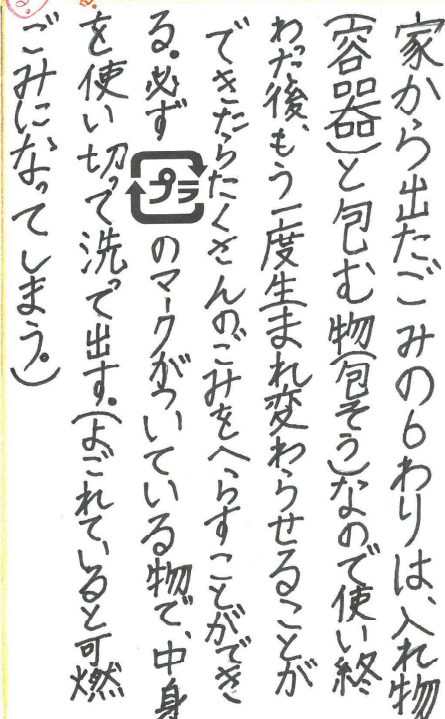 家から出たごみの6わりは、入れ物
(容器)と包む物(包そう)なので使い終
わった後、もう一度生まれ変わらせることが
できたらたくさんのごみをへらすことができ
る。必ずプラのマークがついている物で、中身
を使い切って洗って出す。(よごれていると可燃
ごみになってしまう。)